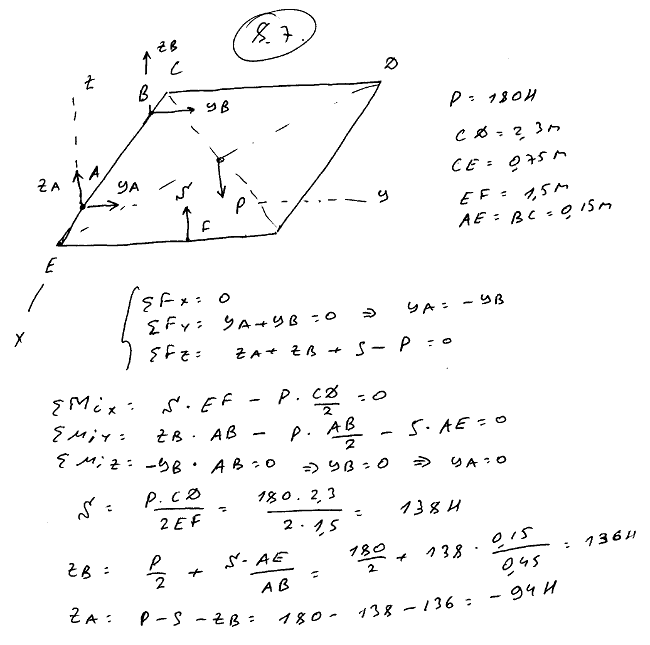 8.7
zB
C
D
z
B
yB
P = 180H
CD = 2,3м
CE = 0,75м
EF = 1,5м
AE = BC = 0,15м
zA
A
yA
S
P
y
F
E
x
ΣFx = 0
ΣFy = yA + yB = 0 ⇒ yA = -yB
ΣFz = zA + zB + S - P = 0
ΣMix = S · EF - P · CD/2 = 0
ΣMiy = zB · AB - P · AB/2 - S · AE = 0
ΣMiz = -yB · AB = 0 ⇒ yB = 0 ⇒ yA = 0
S = P · CD / 2EF = 180 · 2,3 / 2 · 1,5 = 138H
zB = P/2 + S · AE / AB = 180/2 + 138 · 0,15/0,45 = 136H
zA = P - S - zB = 180 - 138 - 136 = -94H